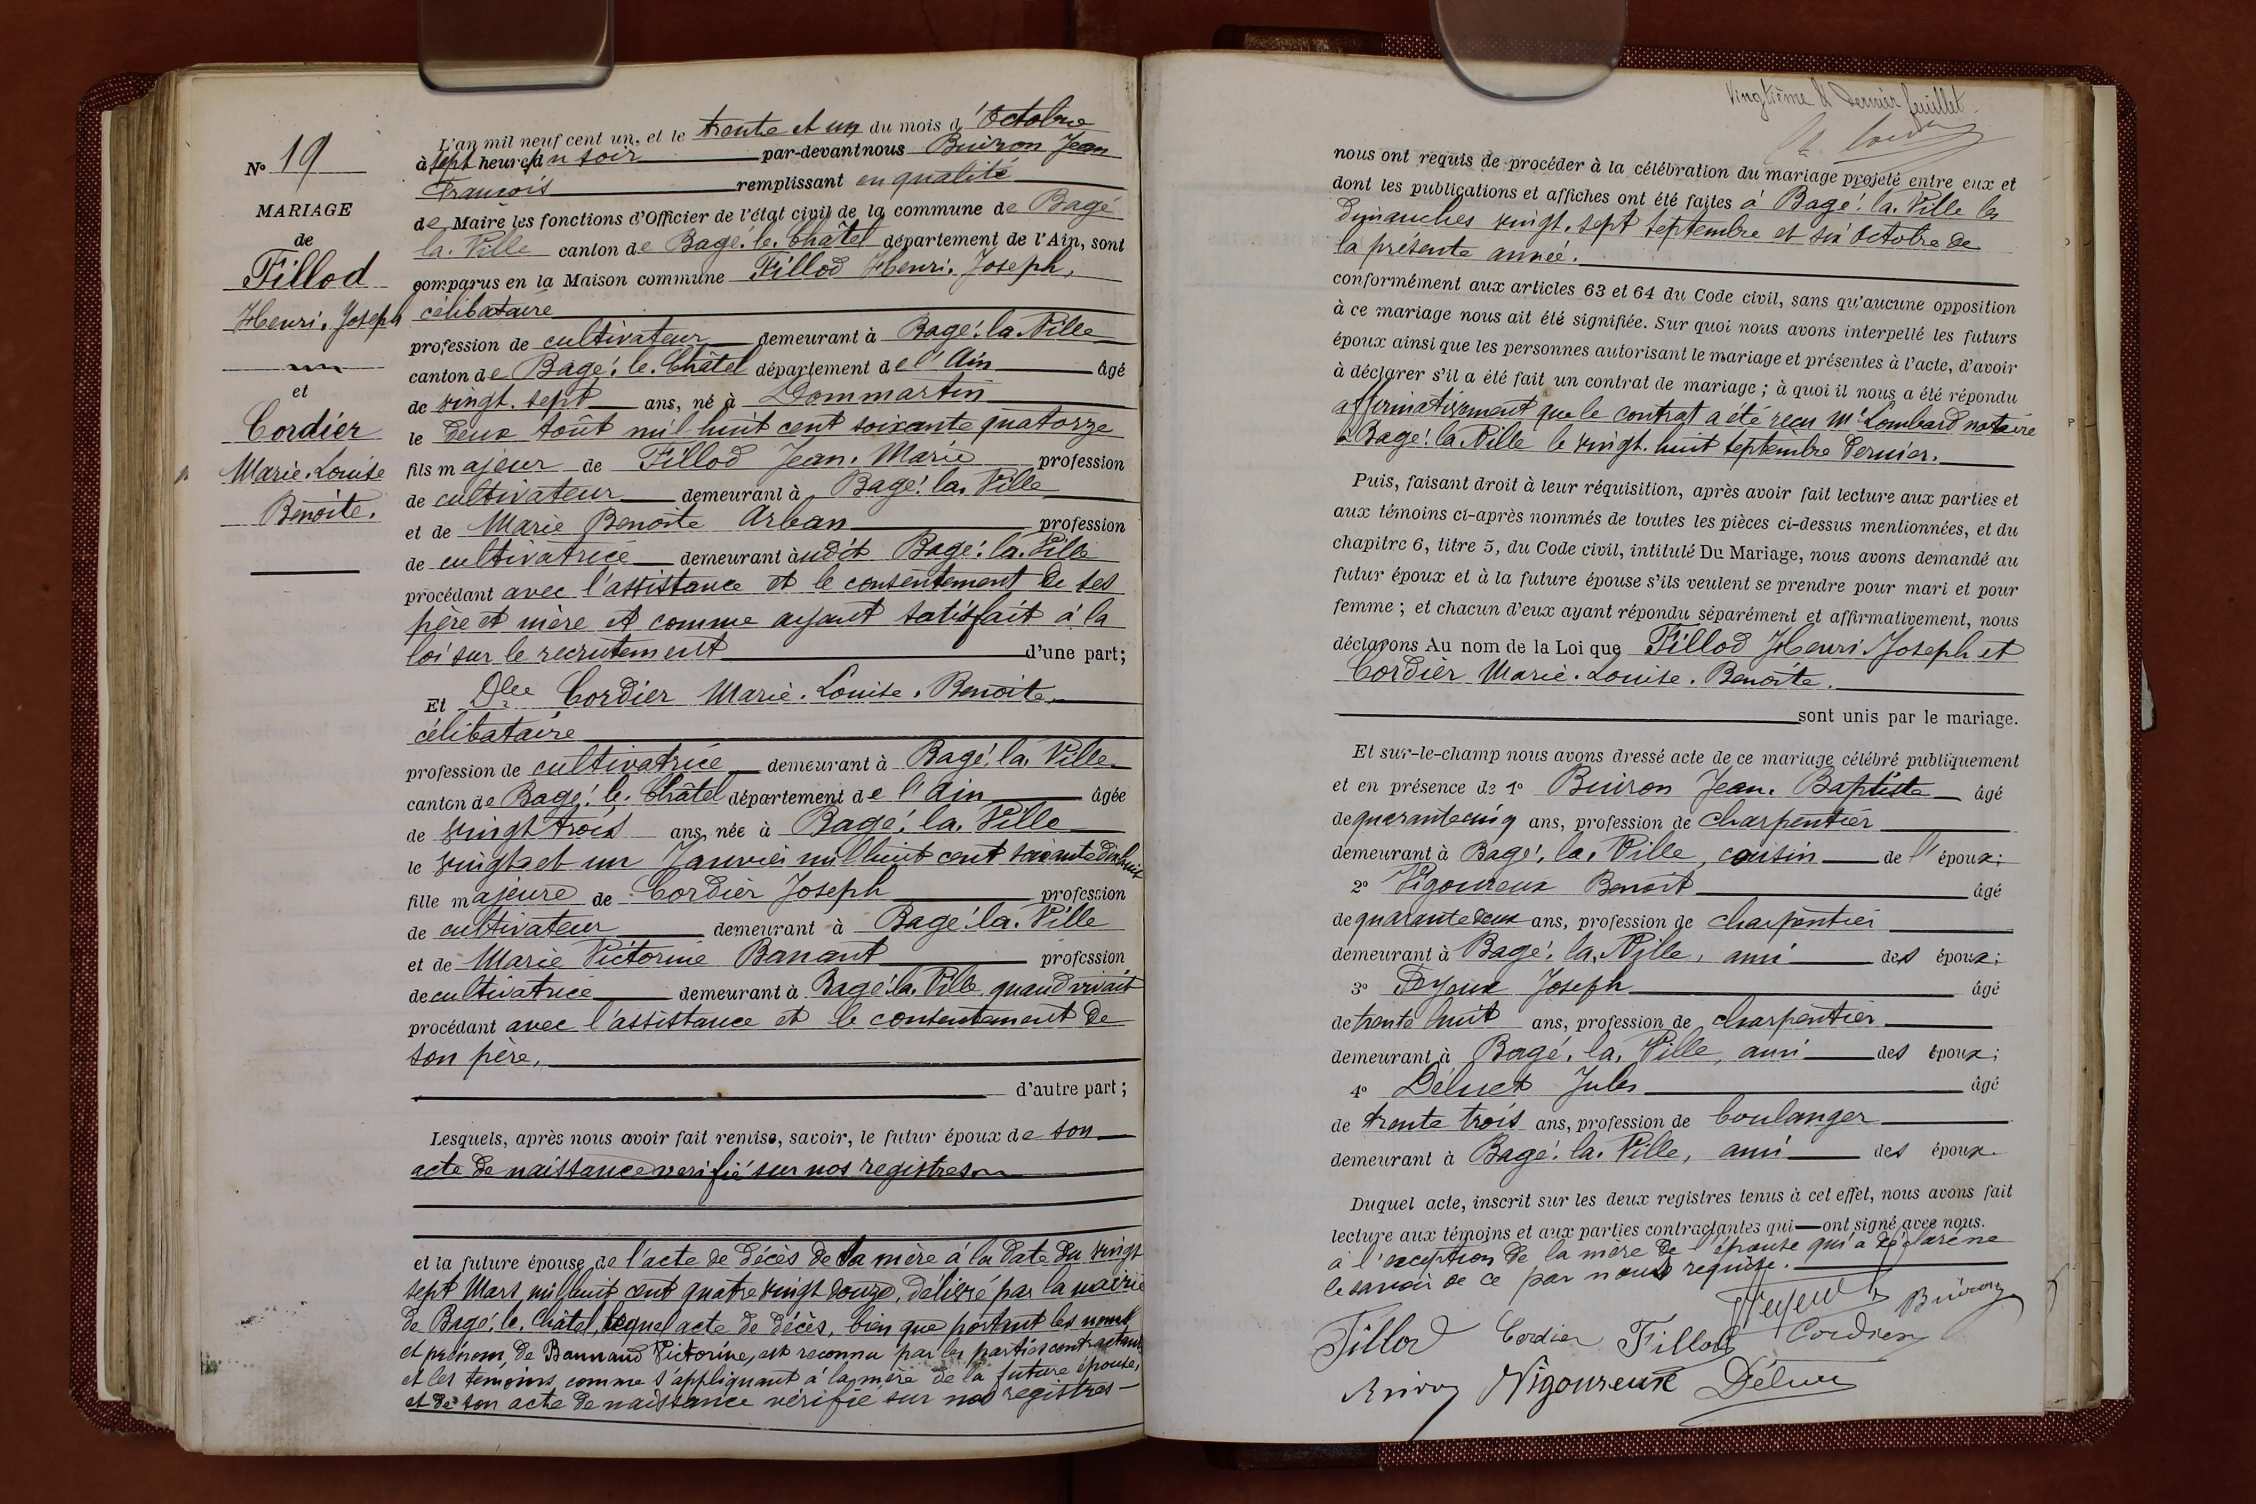 N° 19
MARIAGE
de
Fillod
Henri. Joseph
et
Cordier
Marie. Louise
Benoite.
L'an mil neuf cent un, et le trente et un du mois d'Octobre
à sept heures du soir par-devant nous Buiron Jean
François remplissant en qualité
de Maire les fonctions d'Officier de l'état civil de la commune de Bagé
la. Ville canton de Bagé. le. Châtel département de l'Ain, sont
comparus en la Maison commune Fillod Henri. Joseph,
célibataire
profession de cultivateur demeurant à Bagé. la. Ville
canton de Bagé. le. Châtel département de l'Ain âgé
de vingt. sept ans, né à Dommartin
le deux Août mil huit cent soixante quatorze
fils majeur de Fillod Jean. Marie profession
de cultivateur demeurant à Bagé. la. Ville
et de Marie Benoite Arban profession
de cultivatrice demeurant àudit Bagé. la. Ville
procédant avec l'assistance et le consentement de ses
père et mère et comme ayant satisfait à la
loi sur le recrutement d'une part;
Et Dlle Cordier Marie. Louise. Benoite
célibataire
profession de cultivatrice demeurant à Bagé. la. Ville
canton de Bagé. le. Châtel département de l'Ain âgée
de vingt trois ans, née à Bagé. la. Ville
le vingt et un Janvier mil huit cent soixante dix huit
fille majeure de Cordier Joseph profession
de cultivateur demeurant à Bagé. la. Ville
et de Marie Victorine Banant profession
de cultivatrice demeurant à Bagé. la. Ville quand vivait
procédant avec l'assistance et le consentement de
son père,
d'autre part;
Lesquels, après nous avoir fait remise, savoir, le futur époux de son
acte de naissance verifié sur nos registres
et la future épouse de l'acte de décès de sa mère à la date du vingt
sept Mars mil huit cent quatre vingt douze, délivré par la mairie
de Bagé. le. Châtel, lequel acte de décès, bien que portant les noms
et prénom de Bannand Victorine, est reconnu par les parties contractantes
et les témoins comme s'appliquant à la mère de la future épouse,
et de son acte de naissance vérifié sur nos registres
Vingtième et dernier feuillet.
nous ont requis de procéder à la célébration du mariage projeté entre eux et
dont les publications et affiches ont été faites à Bagé. la. Ville les
dimanches vingt. sept septembre et six Octobre de
la présente année.
conformément aux articles 63 et 64 du Code civil, sans qu'aucune opposition
à ce mariage nous ait été signifiée. Sur quoi nous avons interpellé les futurs
époux ainsi que les personnes autorisant le mariage et présentes à l'acte, d'avoir
à déclarer s'il a été fait un contrat de mariage; à quoi il nous a été répondu
affirmativement que le contrat a été reçu Me Lombard notaire
à Bagé. la. Ville le vingt. huit septembre dernier.
Puis, faisant droit à leur réquisition, après avoir fait lecture aux parties et
aux témoins ci-après nommés de toutes les pièces ci-dessus mentionnées, et du
chapitre 6, titre 5, du Code civil, intitulé Du Mariage, nous avons demandé au
futur époux et à la future épouse s'ils veulent se prendre pour mari et pour
femme; et chacun d'eux ayant répondu séparément et affirmativement, nous
déclarons Au nom de la Loi que Fillod Henri. Joseph et
Cordier Marie. Louise. Benoite.
sont unis par le mariage.
Et sur-le-champ nous avons dressé acte de ce mariage célébré publiquement
et en présence de 1° Buiron Jean. Baptiste âgé
de quarante cinq ans, profession de charpentier
demeurant à Bagé. la. Ville, cousin de l'époux;
2° Vigoureux Benoit âgé
de quarante deux ans, profession de charpentier
demeurant à Bagé. la. Ville, ami des époux;
3° Feyeux Joseph âgé
de trente huit ans, profession de charpentier
demeurant à Bagé. la. Ville, ami des époux;
4° Déluet Jules âgé
de trente trois ans, profession de boulanger
demeurant à Bagé. la. Ville, ami des époux.
Duquel acte, inscrit sur les deux registres tenus à cet effet, nous avons fait
lecture aux témoins et aux parties contractantes qui ont signé avec nous.
à l'exception de la mère de l'épouse qui a déclaré ne
le savoir de ce par nous requise.
Feyeux Buiron
Fillod Cordier Fillod Cordier
Buiron Vigoureux Déluet